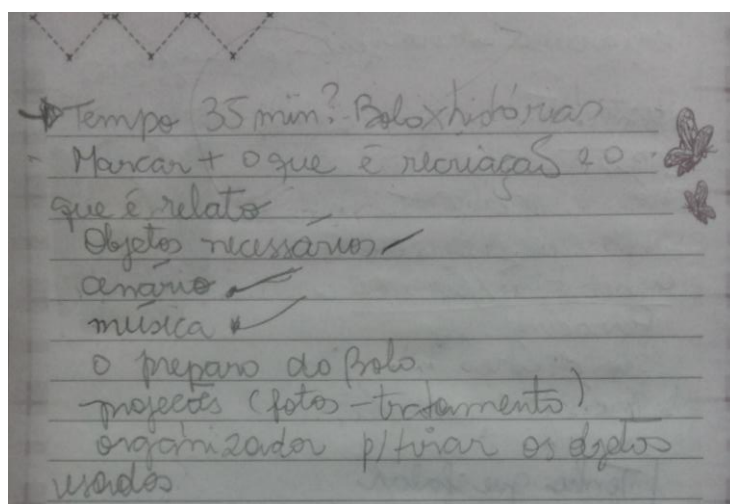 Tempo 35 min? Bolo x histórias
Marcar + o que é recriação e o
que é relato
Objetos necessários
cenário
música
o preparo do Bolo
projeções (fotos - tratamento)
organizador p/ tirar os objetos
usados